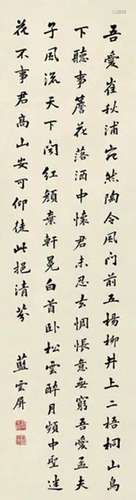 吾愛崔秋浦宛然陶令風門前五楊柳井上二梧桐山鳥
下聽事簷花落酒中懷君未忍去惆悵意無窮吾愛孟夫
子風流天下聞紅顏棄軒冕白首臥松雲醉月頻中聖迷
花不事君高山安可仰徒此挹清芬 藍雲屏